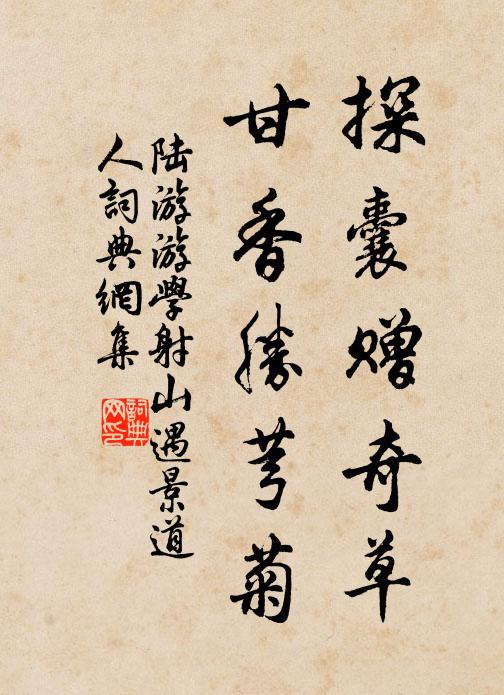 探囊赠奇草
甘香勝芎菊
陆游游學射山遇景道
人詞典網集
詞典网印